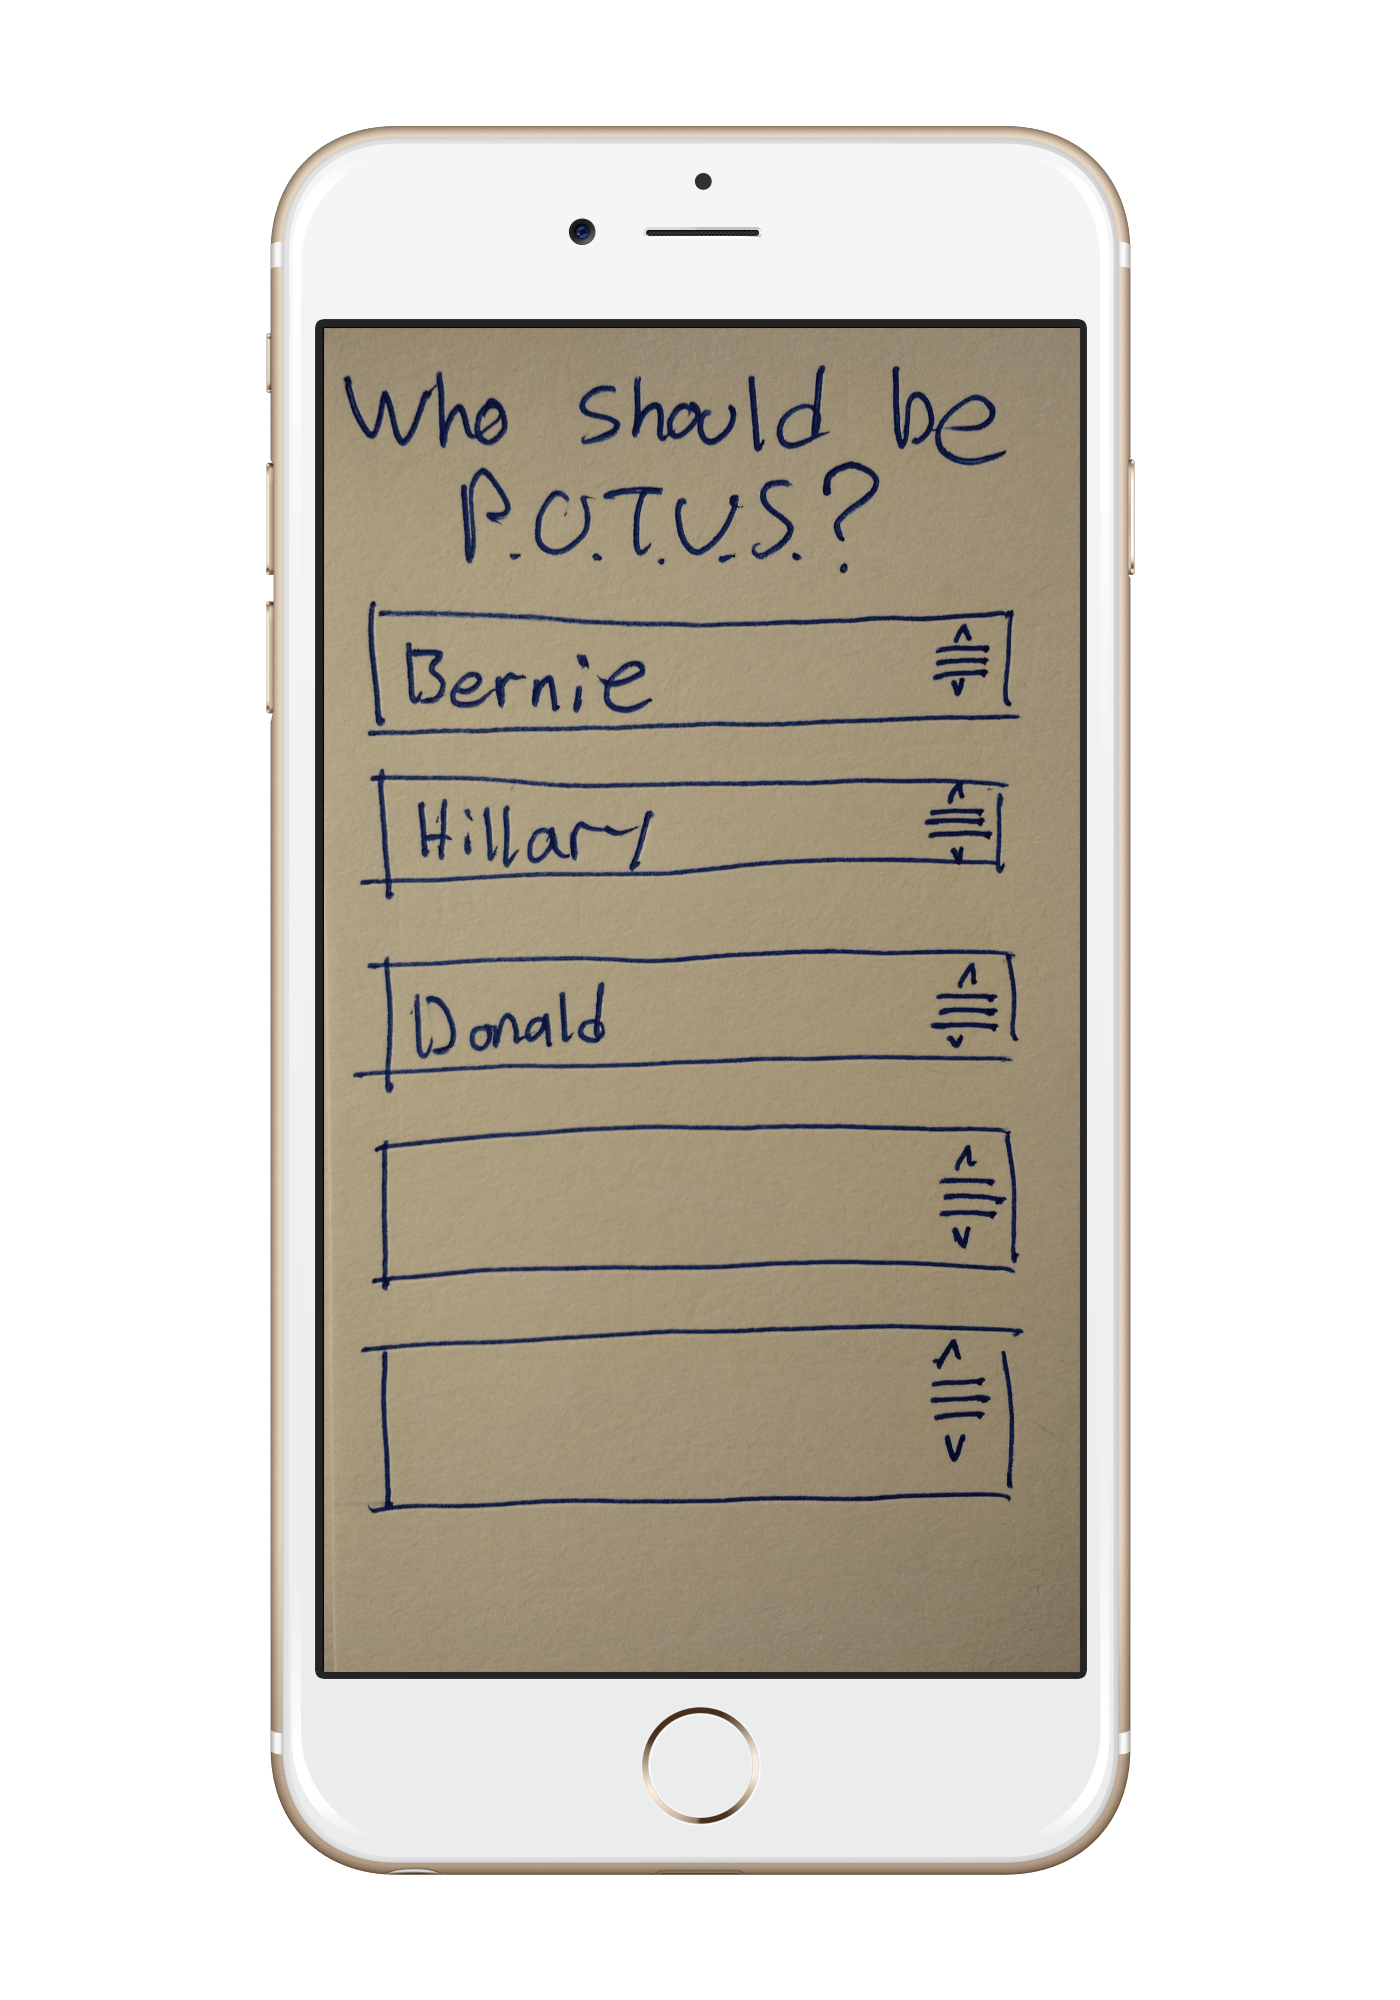 Who should be
P.O.T.U.S.?
Bernie
Hillary
Donald